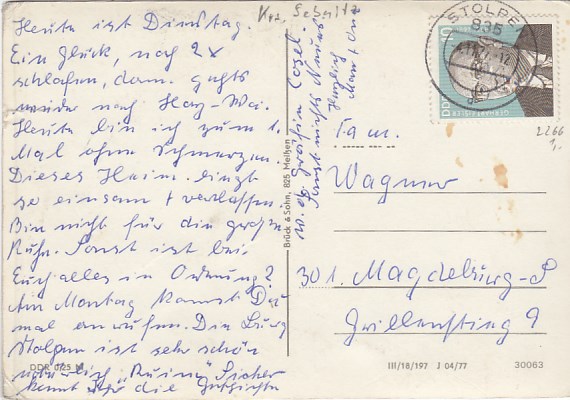 Heute ist Dienstag.
Ein Glück, noch 2x
schlafen, dann gehts
wieder nach
Heute bin ich zum 1.
Mal ohne Schmerzen.
Dieses Heim liegt
so einsam + verlassen.
Bin nicht für die große
Ruhe. Sonst ist bei
Euch alles in Ordnung?
Am Montag kannst Du
mal anrufen. Die Burg
Stolpen ist sehr schön
natürlich Ruine. Sicher
kennt Ihr die Geschichte
DDR 0,25 M
w. d. Gräfin Cosel.
Sonst nichts Neues
Herzlich
Brück & Sohn, 825 Meißen
Krs. Sebnitz
STOLPEN
835
DDR
10
2266
1,-
Fam.
Wagner
301. Magdeburg-S
9
III/18/197 J 04/77
30063